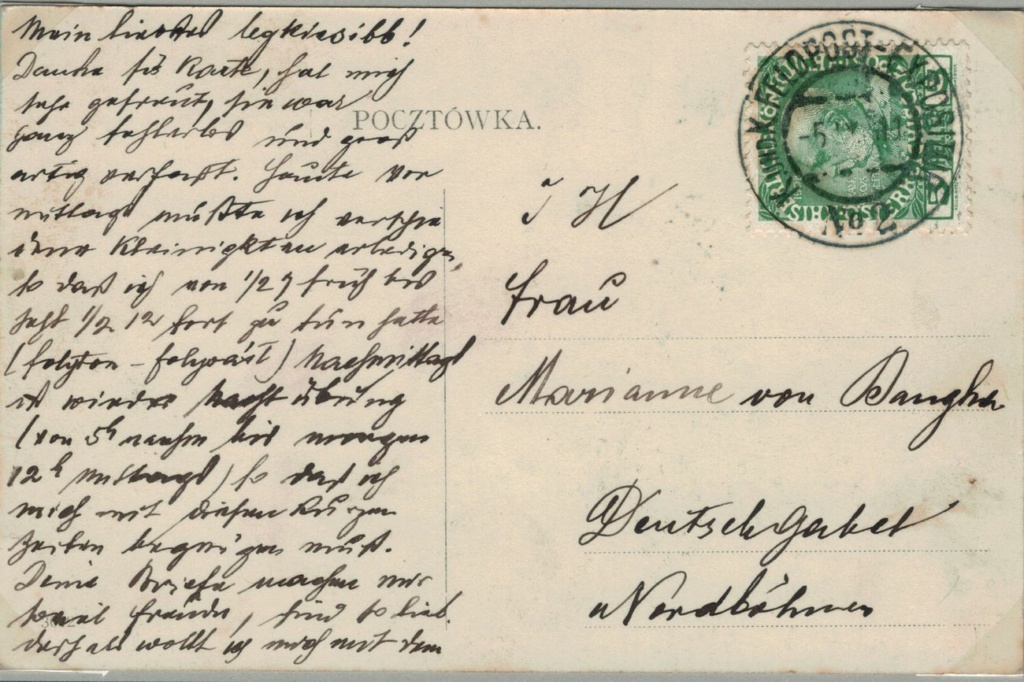 Mein liebstes legkissibb!
Danke für Karte, hat mich
sehr gefreut, sie war
ganz fehlerlos und groß
artig verfasst. Heute vor
mittags mußte ich verschie
dene Kleinigkeiten erledigen,
so daß ich von 1/2 7 früh bis
jetzt 1/2 12 fort zu tun hatte
(folyton - folyvást) Nachmittags
ist wieder Nachtübung
(von 5h nachm bis morgen
12h mittags) so daß ich
mich mit diesen kurzen
Zeilen begnügen muß.
Deine Briefe machen mir
soviel Freude, sind so lieb.
deshalb wollt ich mich mit dem
POCZTÓWKA.
I H
Frau
Marianne von Bangha
Deutsch Gabel
Nordböhmen
K.u.K. FELDPOST-EXPOSITUR